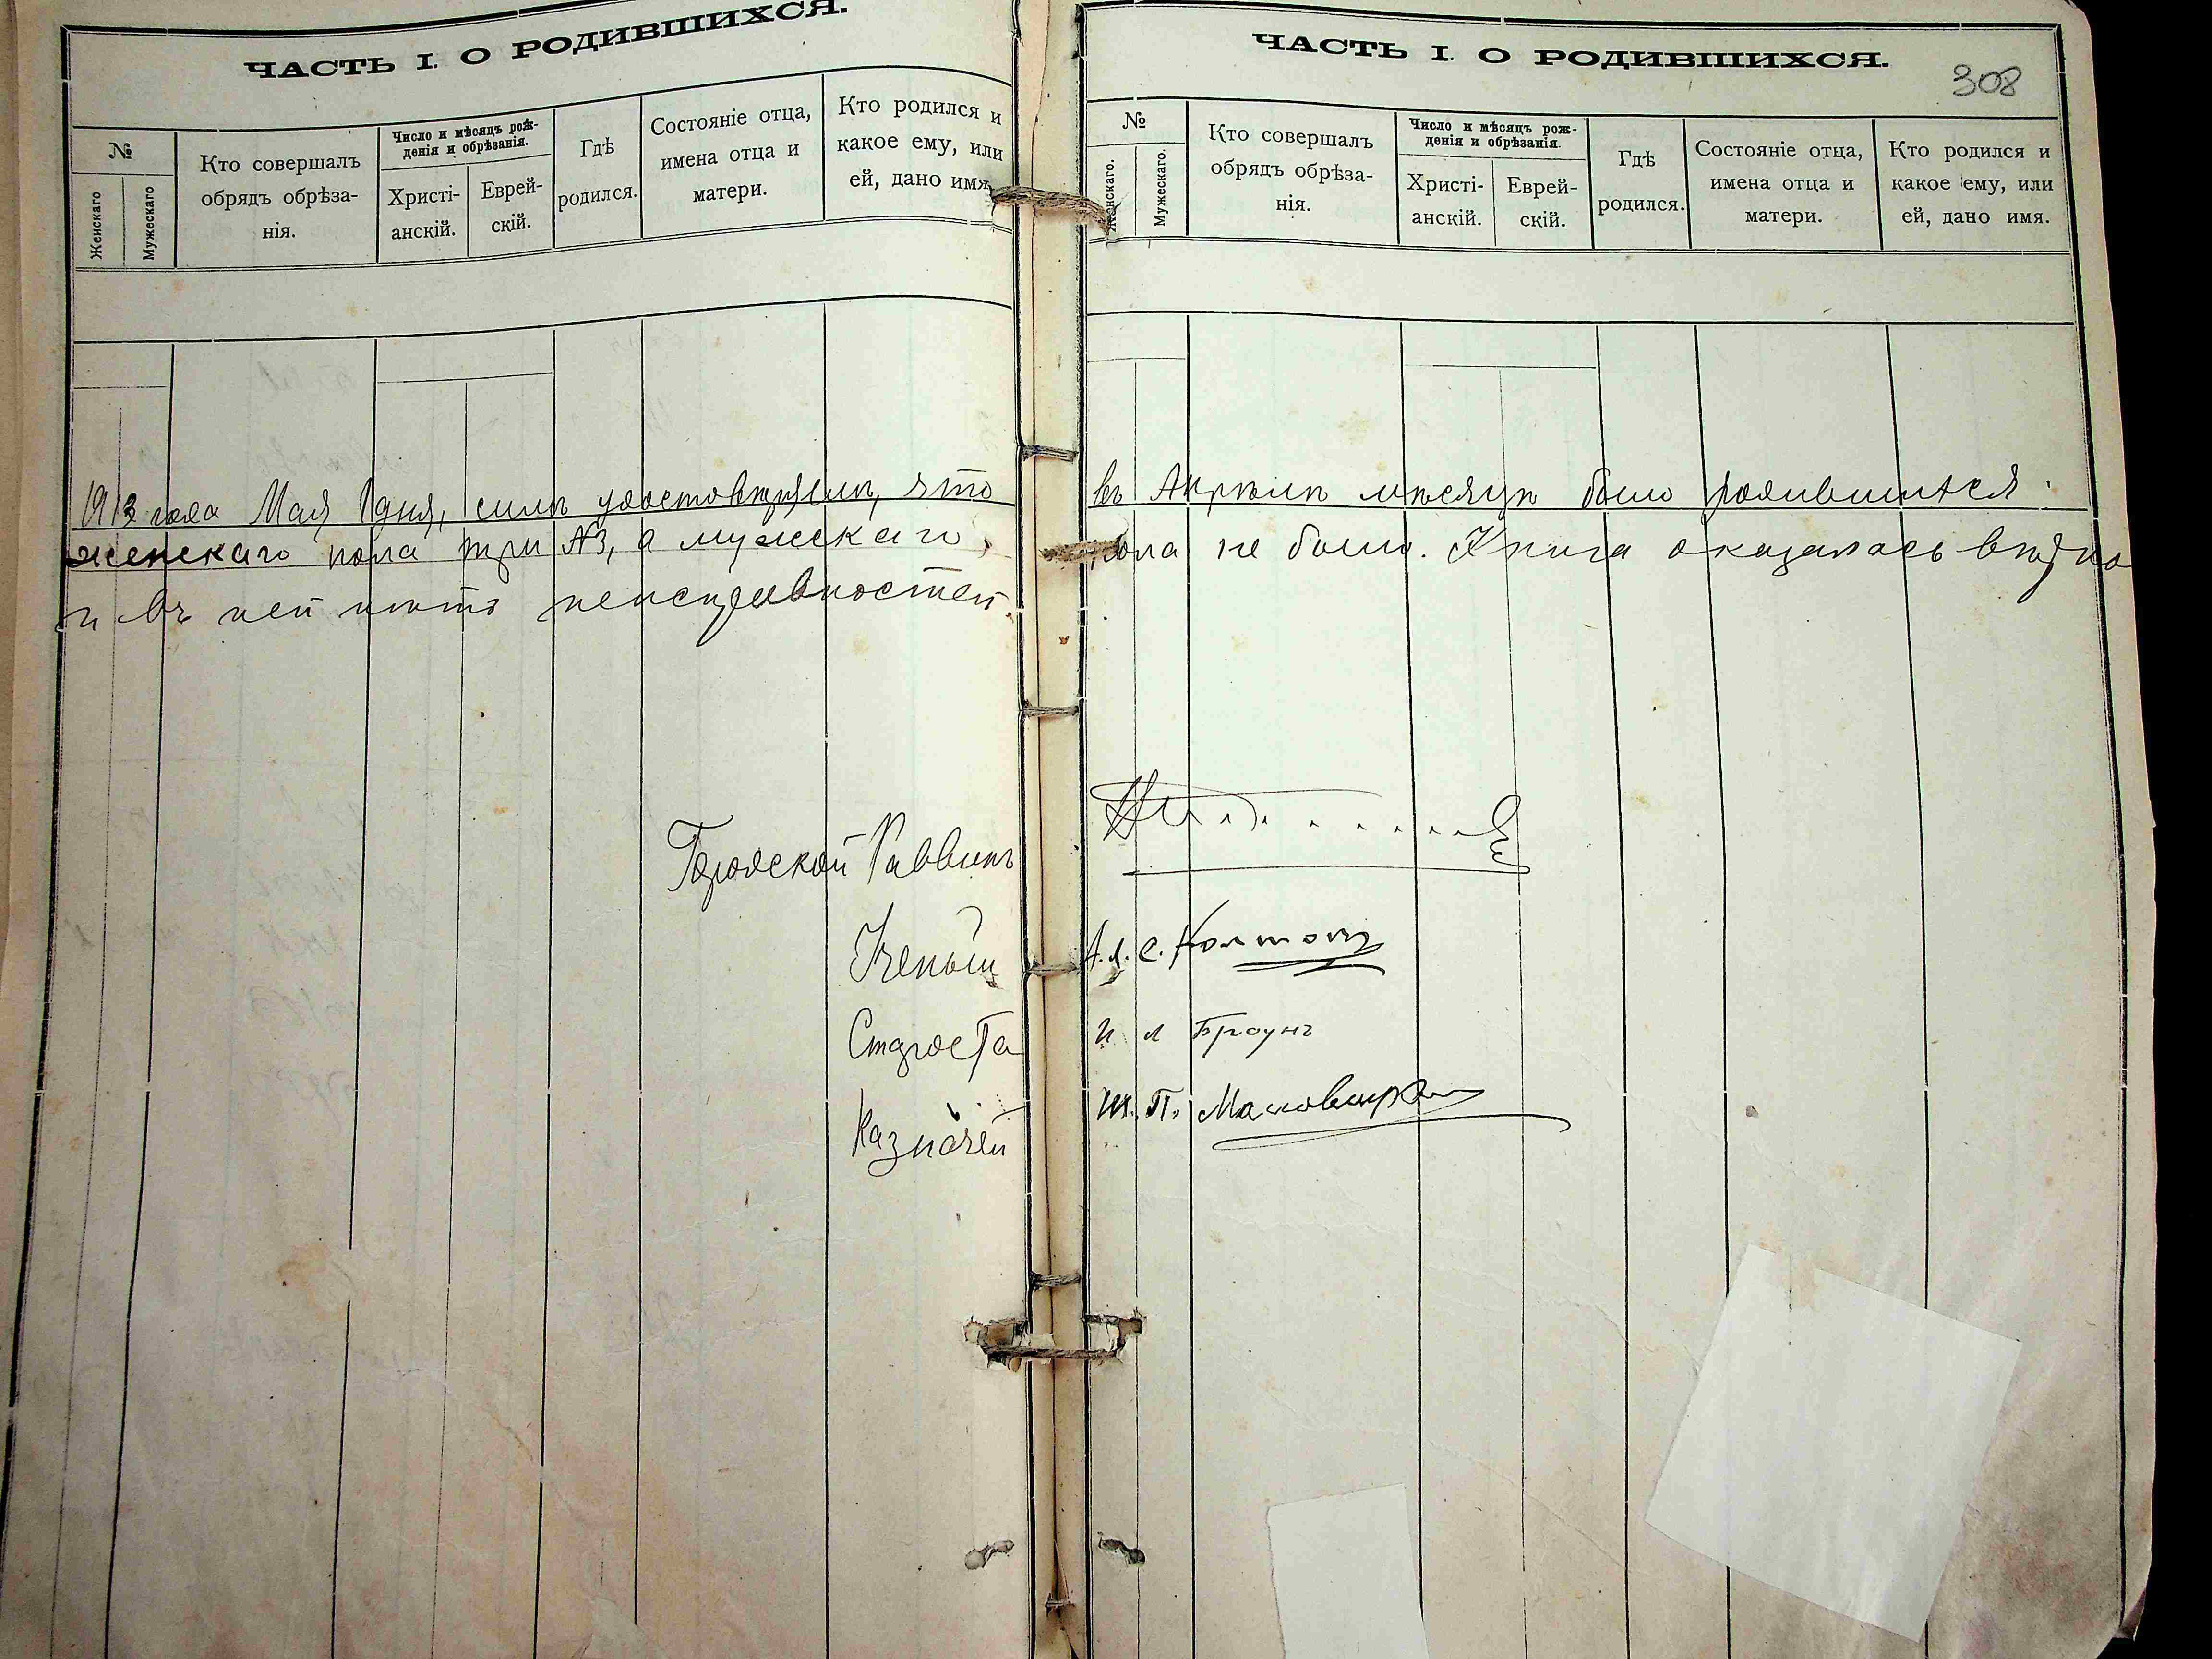 ЧАСТЬ I. О РОДИВШИХСЯ.
№
Женскаго
Мужескаго
Кто совершалъ
обрядъ обрѣза-
нія.
Число и мѣсяцъ рож-
денія и обрѣзанія.
Христі-
анскій.
Еврей-
скій.
Гдѣ
родился.
Состояніе отца,
имена отца и
матери.
Кто родился и
какое ему, или
ей, дано имя.
1913 года Мая 1 дня, симъ удостовѣряемъ, что
женскаго пола три №3, а мужскаго
и въ ней нѣтъ неисправностей.
Городской Раввинъ
Ученый
Староста
Казначей
ЧАСТЬ I. О РОДИВШИХСЯ.
308
№
Женскаго.
Мужескаго.
Кто совершалъ
обрядъ обрѣза-
нія.
Число и мѣсяцъ рож-
денія и обрѣзанія.
Христі-
анскій.
Еврей-
скій.
Гдѣ
родился.
Состояніе отца,
имена отца и
матери.
Кто родился и
какое ему, или
ей, дано имя.
въ Апрѣлѣ мѣсяцѣ было родившихся:
пола не было. Книга оказалась вѣрно
И Л Браунъ
Ш. П.